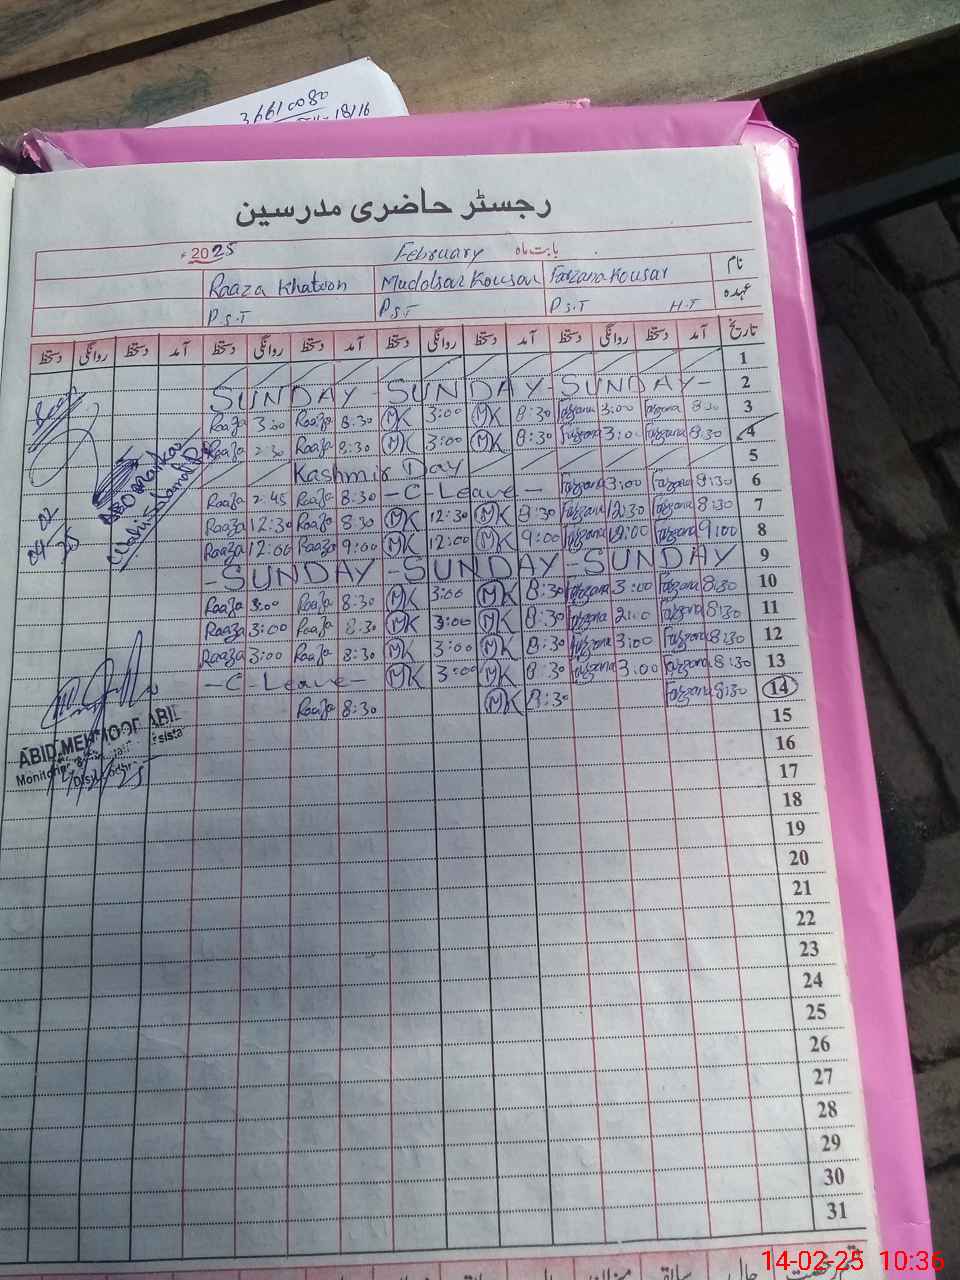 36610080
18/16
رجسٹر حاضری مدرسین
بابت ماہ February 2025ء
نام Farzana Kousar Muddsar Kousar Raaza Khatoon
عہدہ P.S.T H.T P.S.T P.S.T
تاریخ آمد دستخط روانگی دستخط آمد دستخط روانگی دستخط آمد دستخط روانگی دستخط آمد دستخط روانگی دستخط
1
SUNDAY - SUNDAY - SUNDAY - 2
Raaza 3:00 Raaza 8:30 MK 3:00 MK 8:30 Farzana 3:00 Farzana 8:30 3
Raaza 2:30 Raaza 8:30 MK 3:00 MK 8:30 Farzana 3:00 Farzana 8:30 4
Kashmir Day 5
Raaza 2:45 Raaza 8:30 - C - Leave - Farzana 3:00 Farzana 8:30 6
Raaza 12:30 Raaza 8:30 MK 12:30 MK 8:30 Farzana 12:30 Farzana 8:30 7
Raaza 12:00 Raaza 9:00 MK 12:00 MK 9:00 Farzana 12:00 Farzana 9:00 8
- SUNDAY - SUNDAY - SUNDAY 9
Raaza 3:00 Raaza 8:30 MK 3:00 MK 8:30 Farzana 3:00 Farzana 8:30 10
Raaza 3:00 Raaza 8:30 MK 3:00 MK 8:30 Farzana 2:00 Farzana 8:30 11
Raaza 3:00 Raaza 8:30 MK 3:00 MK 8:30 Farzana 3:00 Farzana 8:30 12
- C - Leave - MK 3:00 MK 8:30 Farzana 3:00 Farzana 8:30 13
Raaza 8:30 MK 8:30 Farzana 8:30 14
15
16
17
18
19
20
21
22
23
24
25
26
27
28
29
30
31
04-02-25
ABID MEHMOOD
14-02-25 10:36